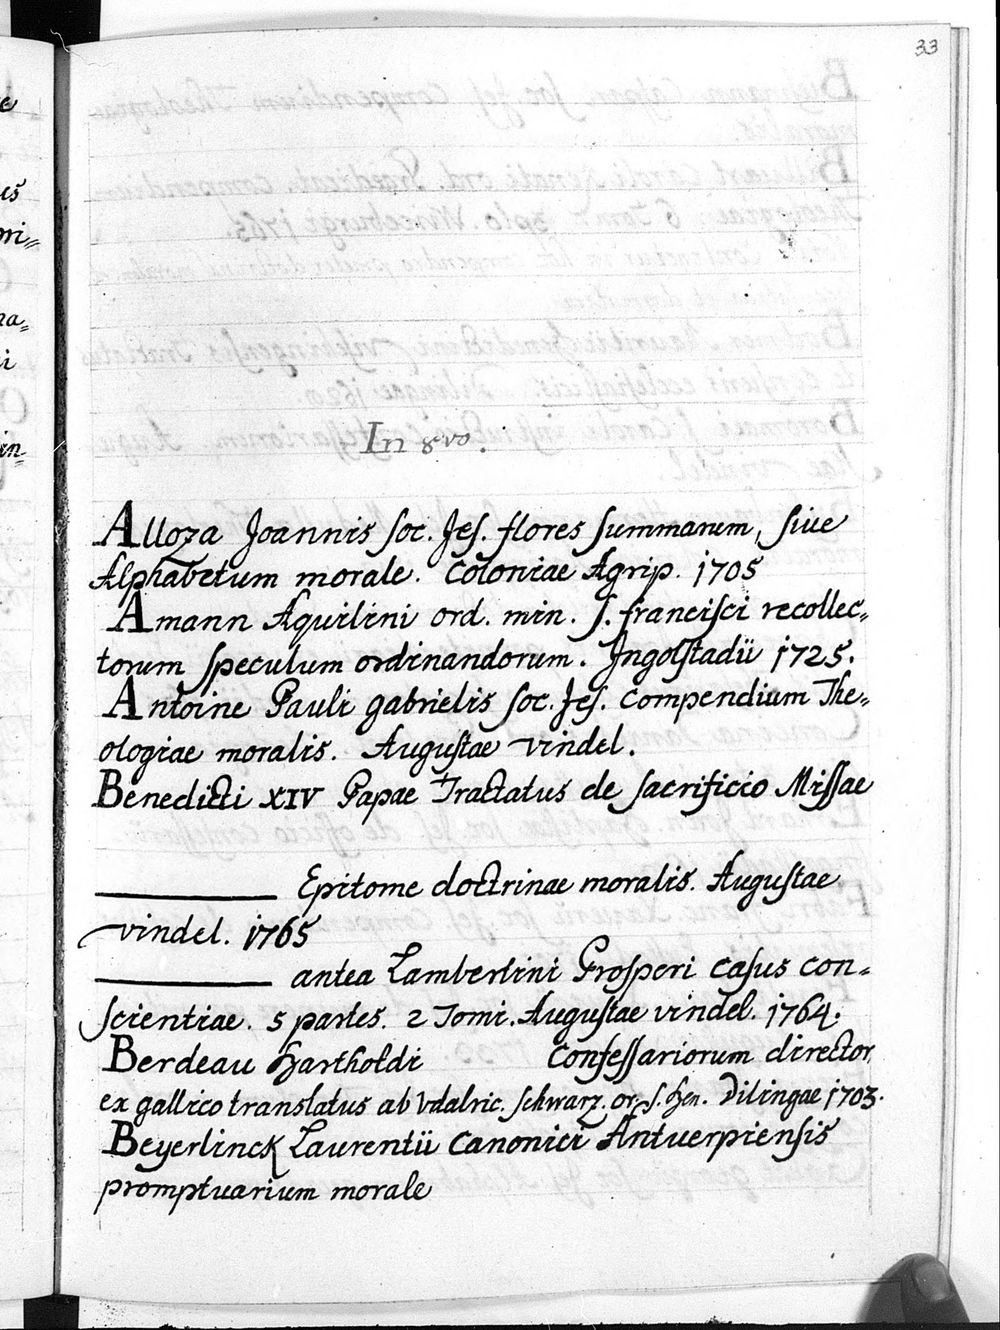 33
In 8vo.
Alloza Joannis soc. Jes. flores summarum, siue
Alphabetum morale. Coloniae Agrip. 1705
Amann Aquilini ord. min. S. francisci recollec=
torum speculum ordinandorum. Ingolstadii 1725.
Antoine Pauli gabrielis soc. Jes. compendium The=
ologiae moralis. Augustae vindel.
Benedicti XIV Papae Tractatus de sacrificio Missae
Epitome doctrinae moralis. Augustae
vindel. 1765
antea Lambertini Prosperi casus con=
scientiae. 5 partes. 2 Tomi. Augustae vindel. 1764.
Berdeau Bartholdi Confessariorum director
ex gallico translatus ab Vdalric. Schwarz. or. S. Ben. Dilingae 1703.
Beyerlinck Laurentii Canonici Antuerpiensis
promptuarium morale